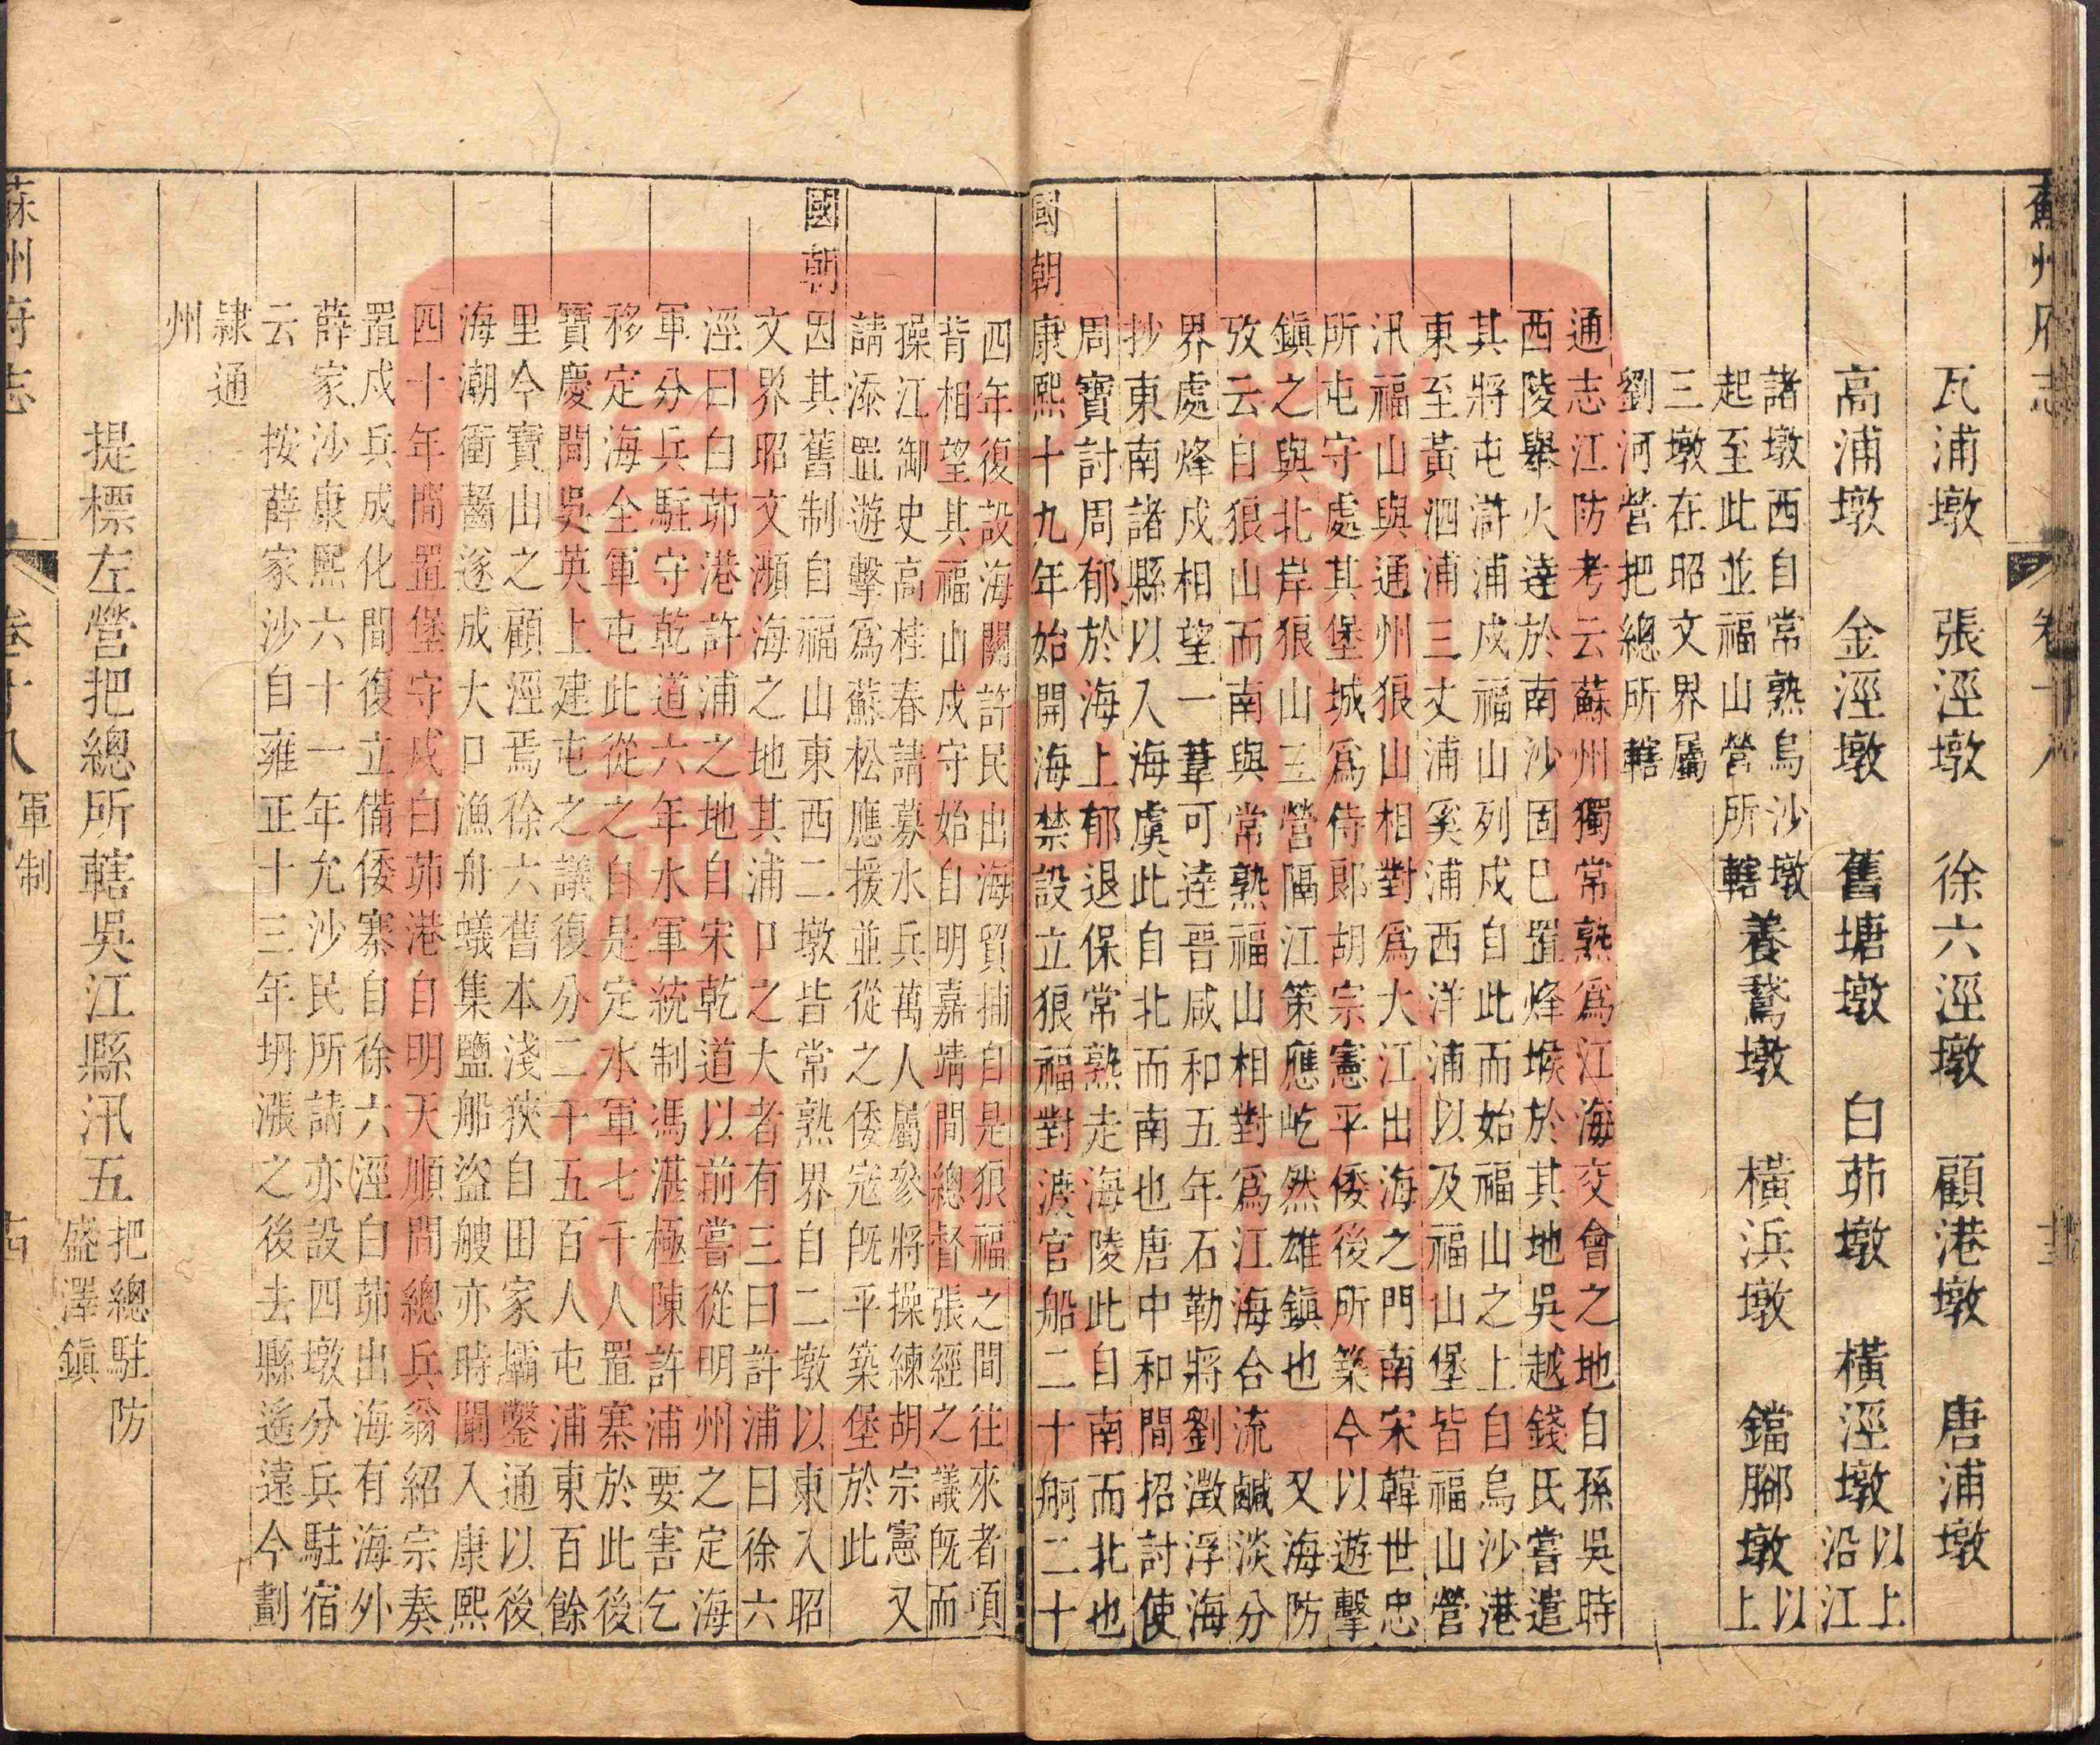 蘇州府志 卷十八
瓦浦墩 張涇墩 徐六涇墩 顧港墩 唐浦墩
高浦墩 金涇墩 舊塘墩 白茆墩 橫涇墩 以上
沿江
諸墩西自常熟烏沙墩
起至此並福山營所轄 養鵞墩 橫浜墩 鐺腳墩 以
上
三墩在昭文界屬
劉河營把總所轄
通志江防考云蘇州獨常熟爲江海交會之地自孫吳時
西陵舉火達於南沙固已置烽堠於其地吳越錢氏嘗遣
其將屯滸浦戍福山列戍自此而始福山之上自烏沙港
東至黃泗浦三丈浦奚浦西洋浦以及福山堡皆福山營
汛福山與通州狼山相對爲大江出海之門南宋韓世忠
所屯守處其堡城爲侍郎胡宗憲平倭後所築今以遊擊
鎮之與北岸狼山三營隔江策應屹然雄鎮也 又海防
攷云自狼山而南與常熟福山相對爲江海合流鹹淡分
界處烽戍相望一葦可達晉咸和五年石勒將劉徵浮海
抄東南諸縣以入海虞此自北而南也唐中和間招討使
周寶討周郁於海上郁退保常熟走海陵此自南而北也
國朝康熙十九年始開海禁設立狼福對渡官船二十舸二十
四年復設海關許民出海貿捕自是狼福之間往來者項
背相望其福山戍守始自明嘉靖間總督張經之議旣而
操江御史高桂春請募水兵萬人屬參將操練胡宗憲又
請添置遊擊爲蘇松應援並從之倭寇旣平築堡於此
國朝因其舊制自福山東西二墩皆常熟界自二墩以東入昭
文界昭文瀕海之地其浦口之大者有三曰許浦曰徐六
涇曰白茆港許浦之地自宋乾道以前嘗從明州之定海
軍分兵駐守乾道六年水軍統制馮湛極陳許浦要害乞
移定海全軍屯此從之自是定水軍七千人置寨於此後
寶慶間吳英上建屯之議復分二千五百人屯浦東百餘
里今寶山之顧涇焉徐六舊本淺狹自田家壩鑿通以後
海潮衝齧遂成大口漁舟蟻集鹽船盜艘亦時闌入康熙
四十年間置堡守戍白茆港自明天順間總兵翁紹宗奏
置戍兵成化間復立備倭寨自徐六涇白茆出海有海外
薛家沙康熙六十一年允沙民所請亦設四墩分兵駐宿
云 按薛家沙自雍正十三年坍漲之後去縣遙遠今劃
隷通
州
提標左營把總所轄吳江縣汛五 把總駐防
盛澤鎮
蘇州府志 卷十八 軍制